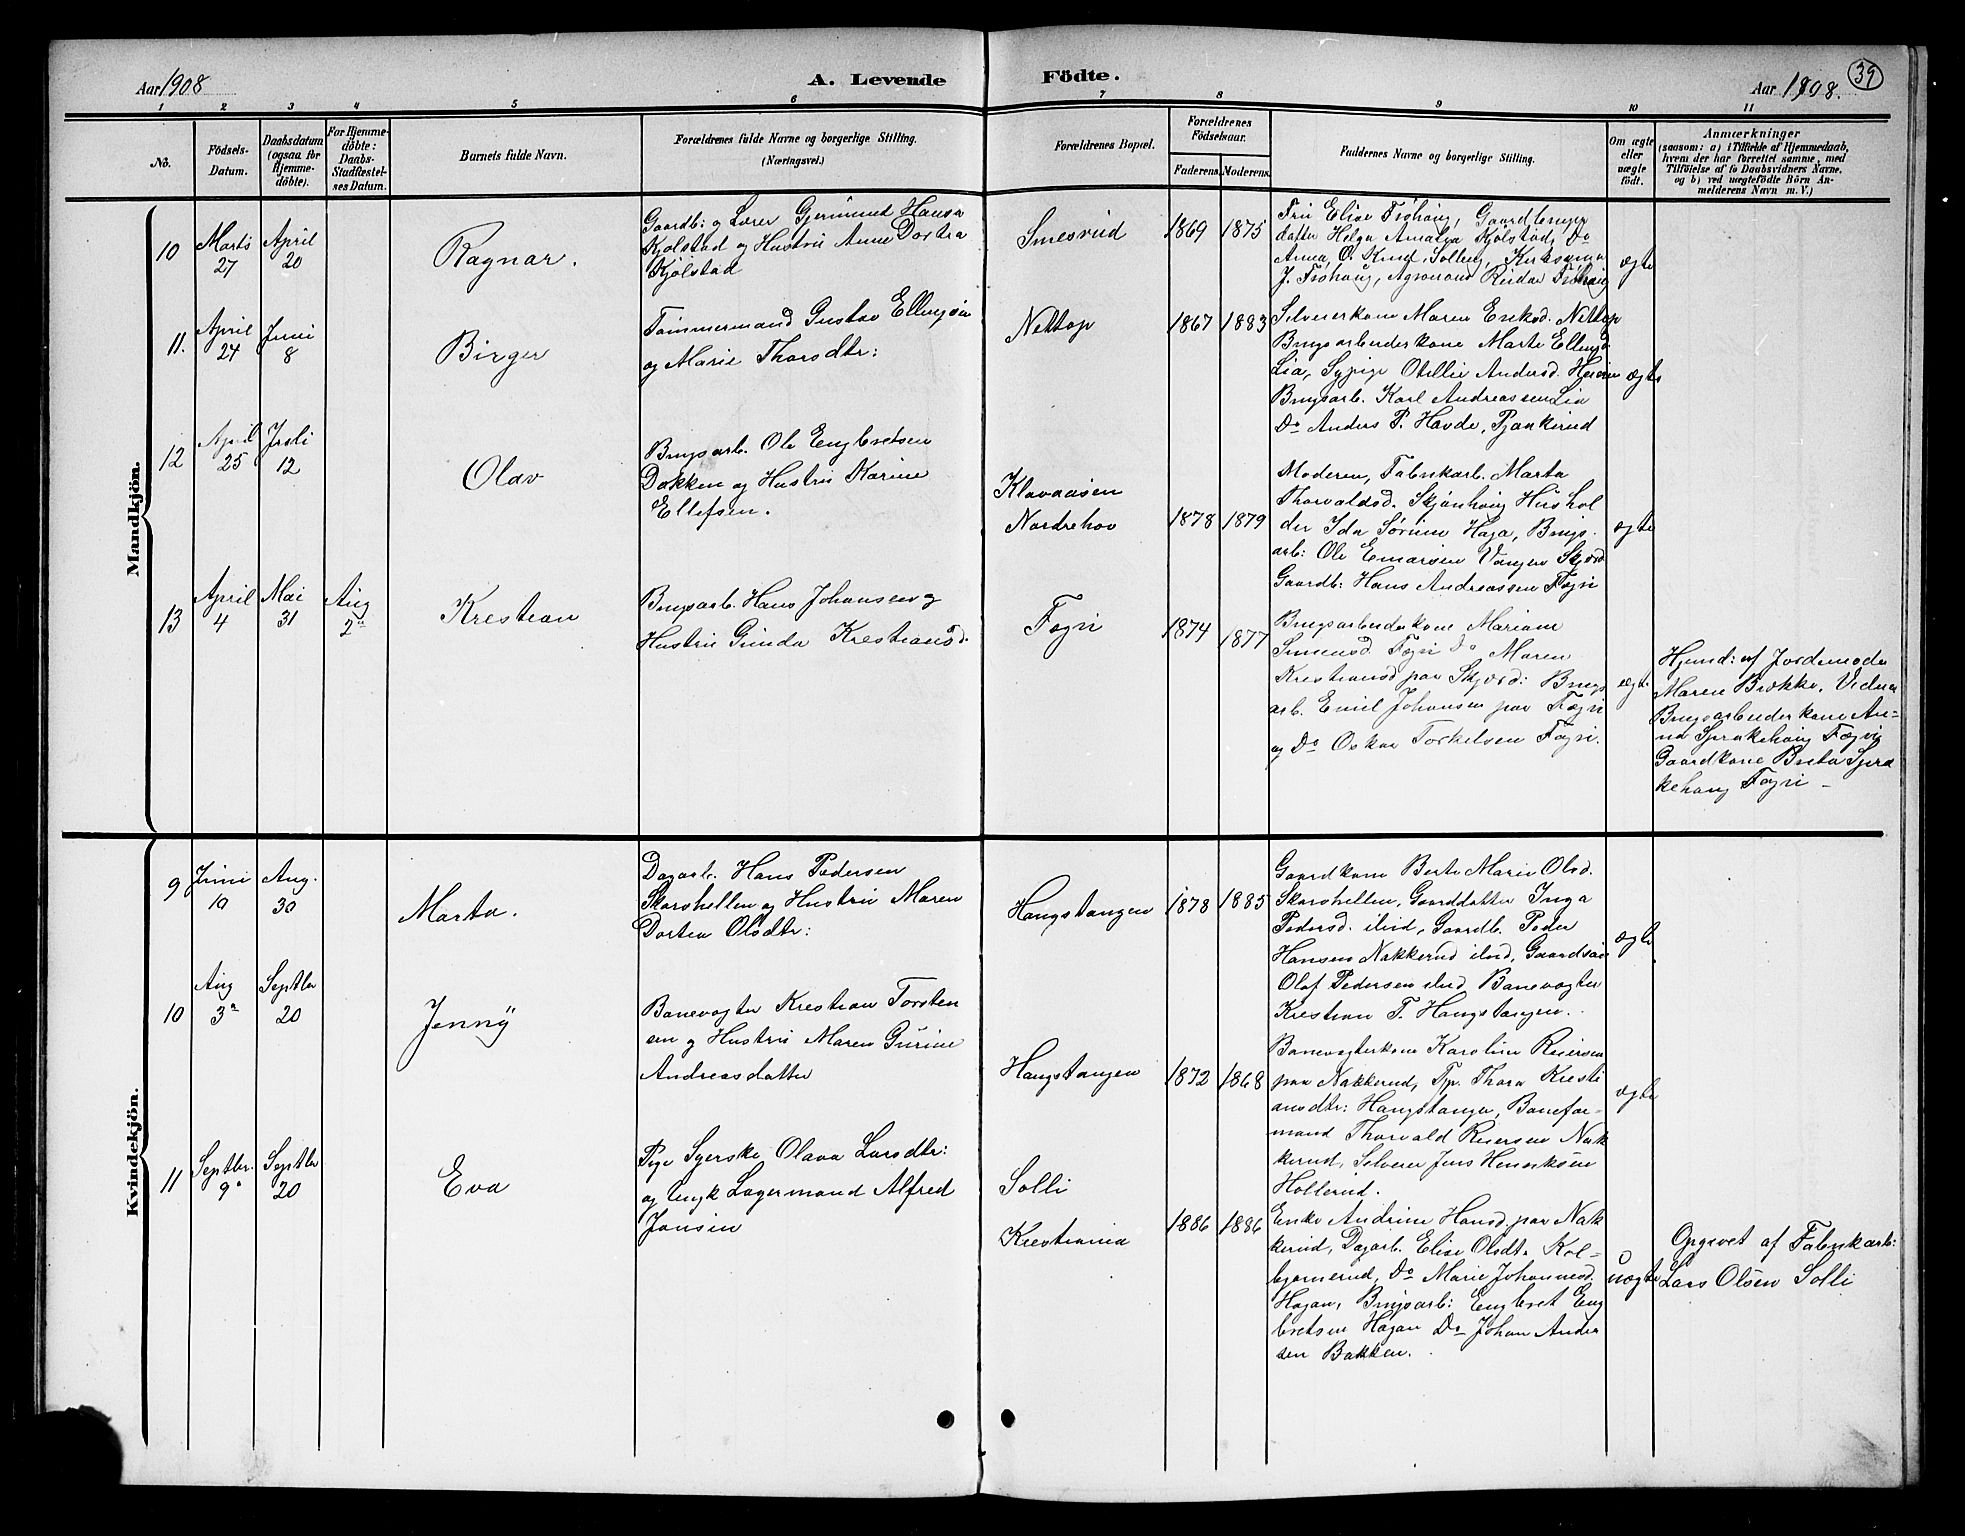 Aar 1908
A. Levende
Födte.
Aar 1908.
39
1 2 3 4 5 6 7 8 9 10 11
No.
Födsels-
Datum.
Daabsdatum
(ogsaa for
Hjemme-
döbte).
For Hjemme-
döbte:
Daabs-
Stadfæstel-
ses Datum.
Barnets fulde Navn.
Forældrenes fulde Navne og borgerlige Stilling.
(Næringsvei.)
Forældrenes Bopæl.
Forældrenes
Födselsaar.
Faderens. Moderens.
Faddernes Navne og borgerlige Stilling.
Om ægte
eller
uægte
födt.
Anmærkninger
(saasom: a) i Tilfælde af Hjemmedaab,
hvem der har forrettet samme, med
Tilföielse af to Daabsvidners Navne.
og b) ved uægtefödte Börn An-
melderens Navn m. V.)
Mandkjön.
10
Marts
27
April
20
Ragnar.
Gaardb: og Lærer Gjermund Hansen
Kjølstad og Hustru Anne Dortea
Kjölstad
Smesrud
1869 1875
Fru Elise Frøhaug, Gaardbruger
datter Helga Amalia Kjölstad, Do
Anna O. Knud. Solberg, Kirkesanger
J. Frøhaug, Agronom Reidar Frøhaug
ægte
11.
April
24
Juni
8
Birger
Tømmermand Gustav Ellingsen
og Marie Thorsdtr:
Nettop
1867 1883
Selveierkone Maren Eriksd. Nettop
Brugsarbeiderkone Marte Ellingsd
Lia, Sypige Otellie Andersd. Heieren
Brugsarb. Karl Andreassen Lia
Do Anders P. Havde, Pjaakerud
ægte
12
April
25
Juli
12
Olav
Brugsarb. Ole Engebretsen
Dokken og Hustru Karine
Ellefsen.
Klavaasen
Norderhov
1878 1879
Moderen, Fabrikarb. Marta
Thorvaldsd. Skjønhaug Hushol
der Ida Sørum Haga, Brugs.
arb: Ole Emarsen Vangen Skjærd.
Gaardb: Hans Andreassen Fægri
ægte
13
April
4
Mai
31
Aug
2en
Krestian
Brugsarb. Hans Johansen og
Hustru Gunda Krestiansd.
Fægri
1874 1877
Brugsarbeiderkone Mariane
Simensd. Fægri Do Maren
Krestiansd paa Skjærd: Brugs
arb. Emil Johansen paa Fægri
og Do Oskar Torkelsen Fægri.
ægte
Hjemd: af Jordemoder
Maren Brokke. Vidner
Brugsarbeiderkone An-
na Sprakehaug Fægri
Gaardkone Berta Spra
kehaug Fægri –
Kvindekjön.
9
Juni
19
Aug.
30
Marta.
Dagarb. Hans Pedersen
Skarshellen og Hustru Maren
Dortea Olsdtr:
Haugstangen
1878 1885
Gaardkone Berte Marie Olsd.
Skarshellen, Gaarddatter Inga
Pedersd. ibid, Gaardb. Peder
Hansen Nakkerud ibid, Gaardsøn
Olaf Pedersen ibid Banevogter
Krestian T. Haugstangen.
ægte
10
Aug
3n
Septbr
20
Jenny
Banevogter Krestian Torsten
sen og Hustru Maren Gurine
Andreasdatter
Haugstangen
1872 1868
Banevogterkone Karoline Reiersen
paa Nakkerud, Tj. Thora Kresti
ansdtr: Haugstangen, Banefor-
mand Thorvald Reiersen Nak
kerud, Selveier Jens Henriksen
Hollerud.
ægte
11
Septbr.
9n
Septbr
20
Eva
Pige Syerske Olava Larsdtr:
og Ungk Lagermand Alfred
Jansen
Solli
Krestiania
1886 1886
Enke Andrine Hansd. paa Nak
kerud, Dagarb. Elise Olsdtr Kol-
bjørnerud, Do Marie Johannesd.
Hagan, Brugsarb: Engebret Eng
bretsen Hagan Do Johan Ander
sen Bakken.
uægte
Opgivet af Fabrikarb:
Lars Olsen Solli